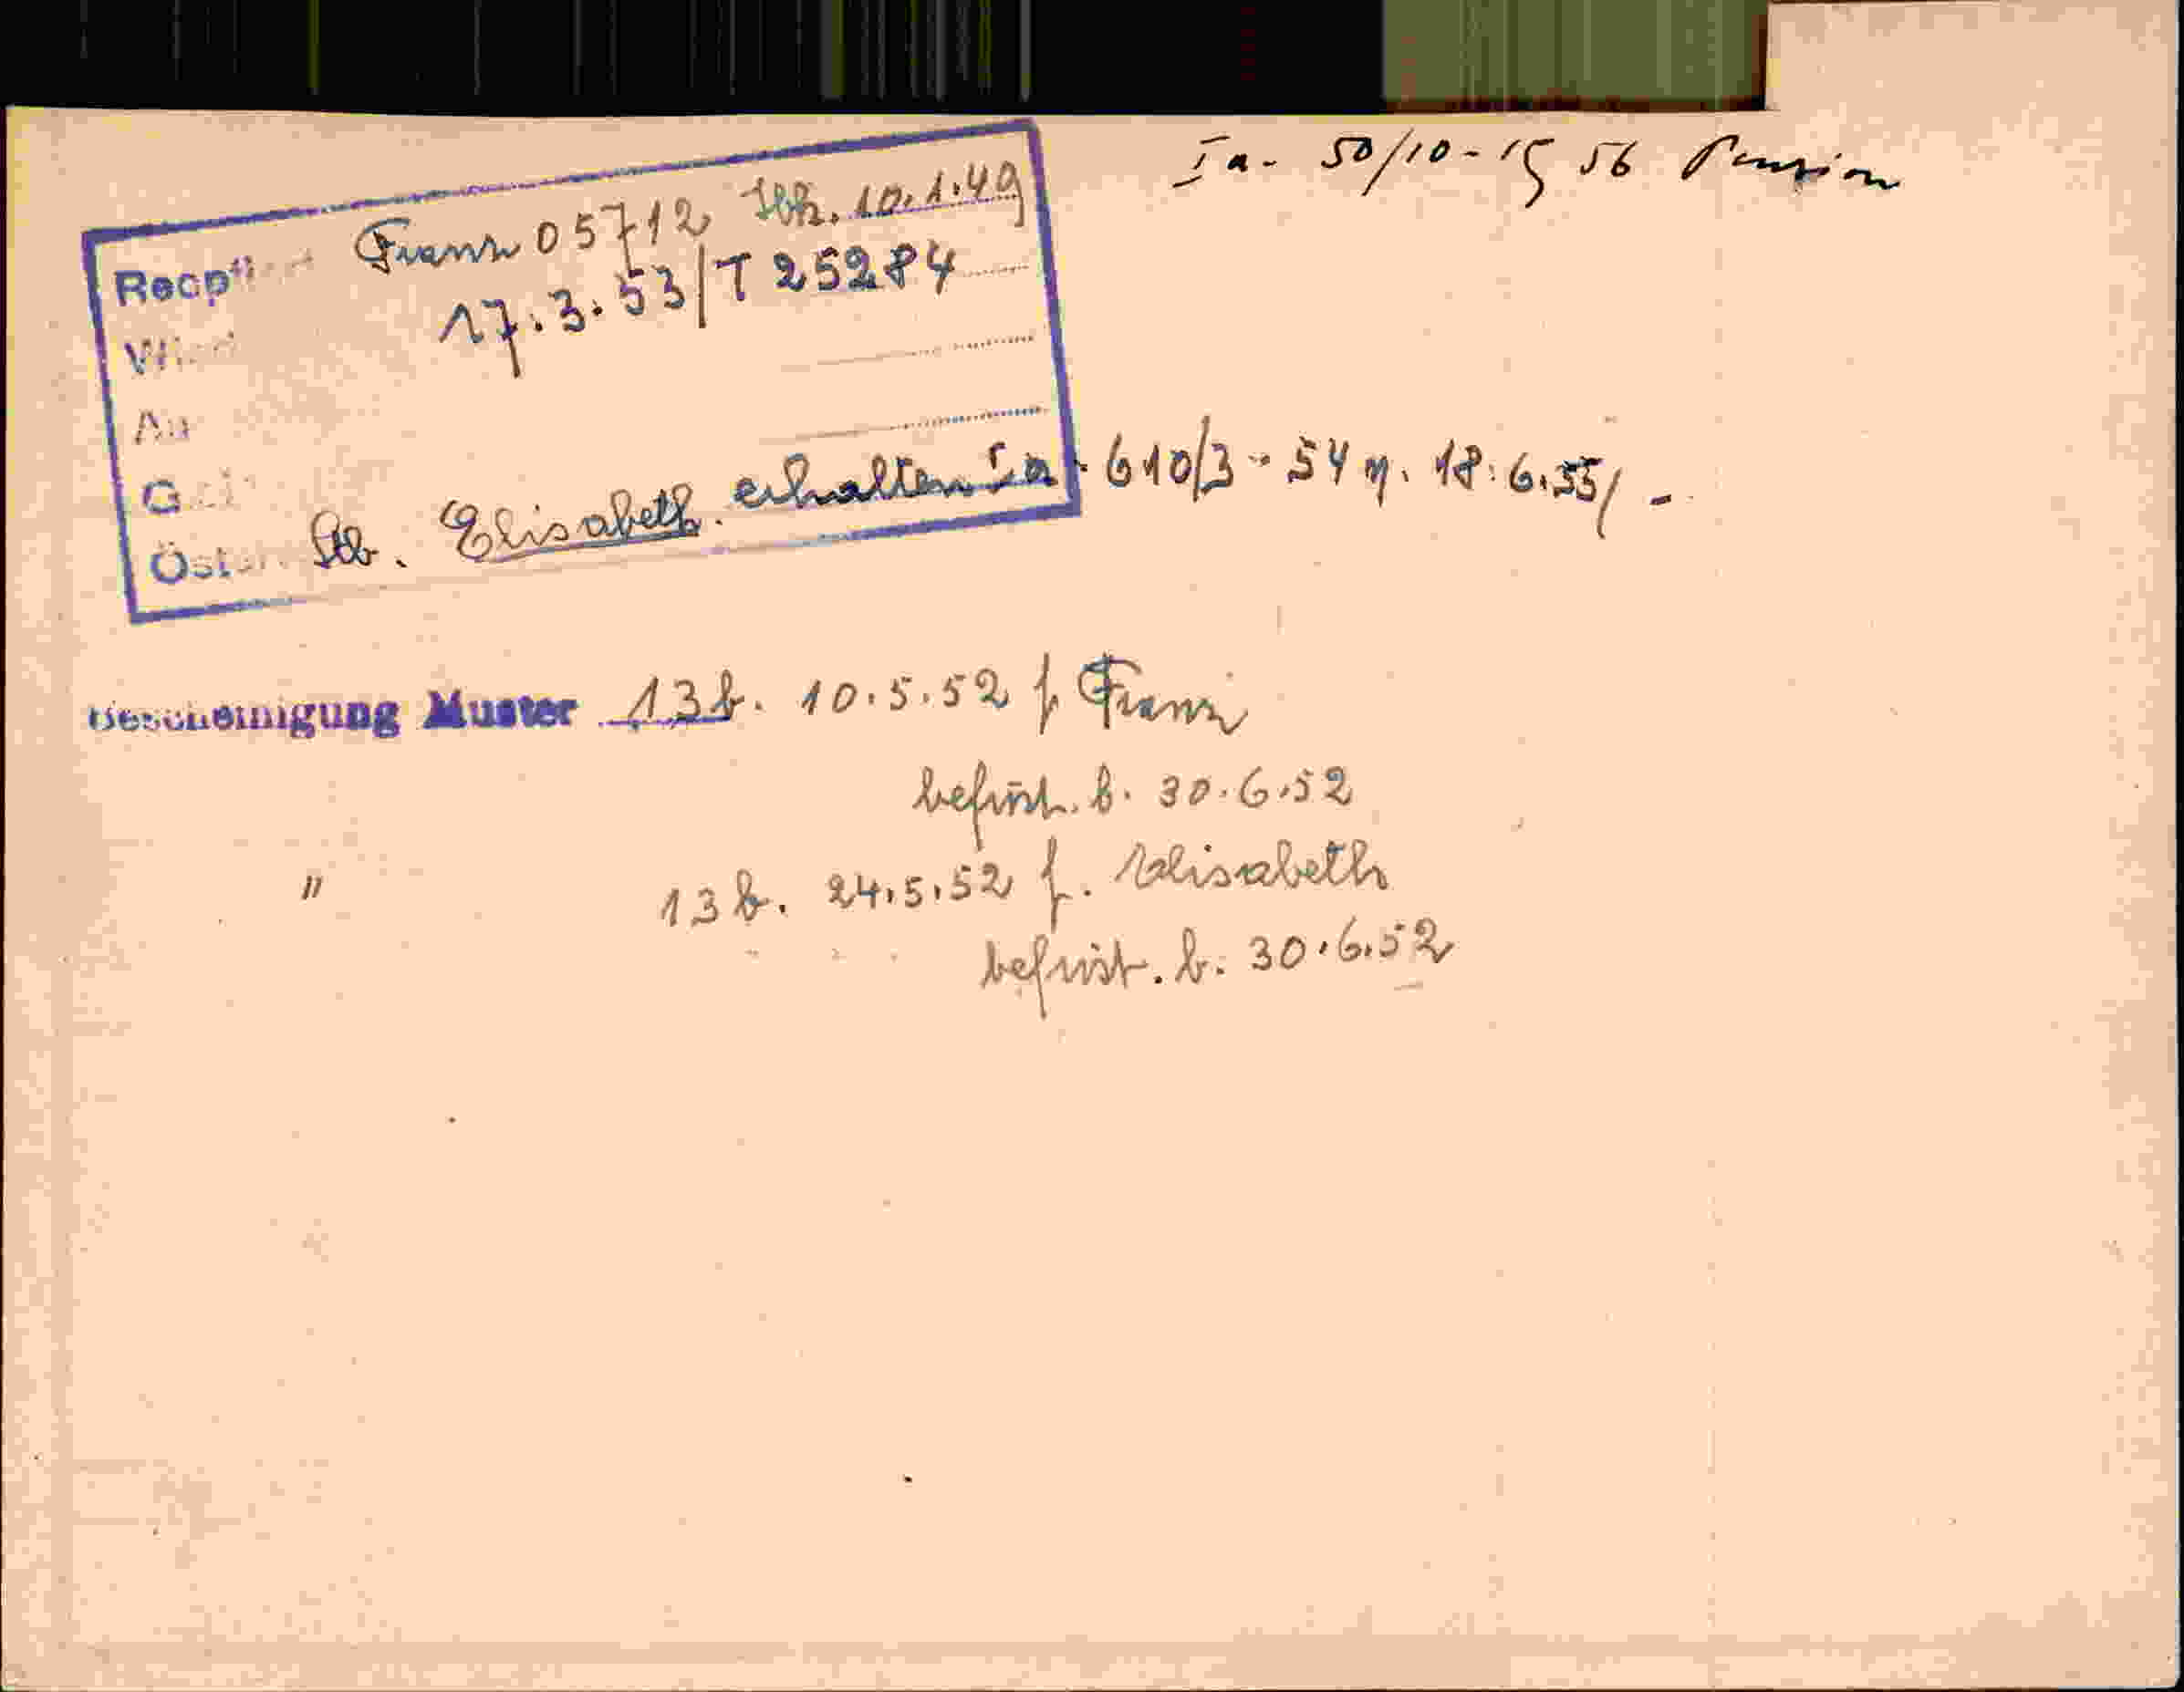 Ia- 50/10-15 56 Pension
Franz 05712 10.1.49
17.3.53/T 25284
Elisabeth. erhalten Ia. 610/3-54 18.6.55/-
Bescheinigung Muster 13b. 10.5.52 f. Franz
befrist. b. 30.6.52
" 13b. 24.5.52 f. Elisabeth
befrist. b. 30.6.52